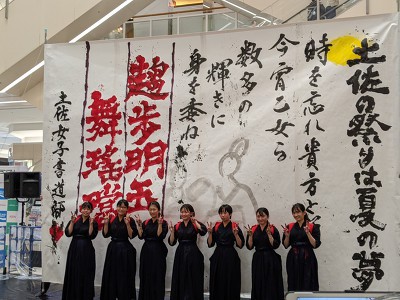 土佐の祭りは夏の夢
時を忘れ貴方と
今宵乙女ら
数多の
輝きに
身を委ね
舞瑤
土佐女子書道部